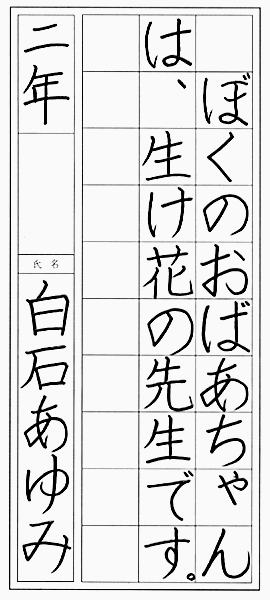 ぼくのおばあちゃん
は、生け花の先生です。
二年
氏名
白石あゆみ